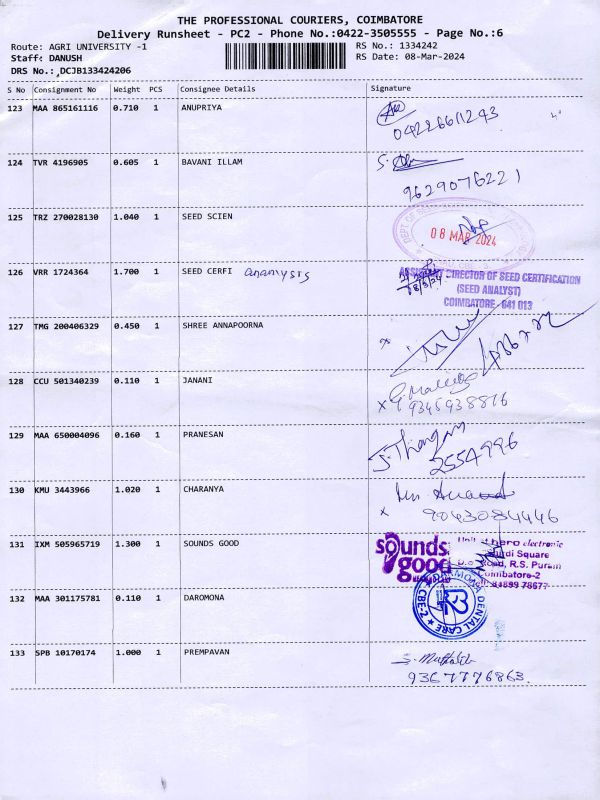 THE PROFESSIONAL COURIERS, COIMBATORE
Delivery Runsheet - PC2 - Phone No.:0422-3505555 - Page No.:6
Route: AGRI UNIVERSITY -1
RS No.: 1334242
Staff: DANUSH
RS Date: 08-Mar-2024
DRS No.: DCJB133424206
S No Consignment No Weight PCS Consignee Details Signature
123 MAA 865161116 0.710 1 ANUPRIYA
04226611243
124 TVR 4196905 0.605 1 BAVANI ILLAM
9629076221
125 TRZ 270028130 1.040 1 SEED SCIEN
08 MAR 2024
126 VRR 1724364 1.700 1 SEED CERFI anamysts
ASSISTANT DIRECTOR OF SEED CERTIFICATION
(SEED ANALYST)
COIMBATORE - 641 013
127 TMG 200406329 0.450 1 SHREE ANNAPOORNA
128 CCU 501340239 0.110 1 JANANI
129 MAA 650004096 0.160 1 PRANESAN
2554996
130 KMU 3443966 1.020 1 CHARANYA
9043084446
131 IXM 505965719 1.300 1 SOUNDS GOOD
sounds good
hero electronic
Square
Road, R.S. Puram
Coimbatore-2
132 MAA 301175781 0.110 1 DAROMONA
DENTAL CARE
CBE-2
133 SPB 10170174 1.000 1 PREMPAVAN
9367776863